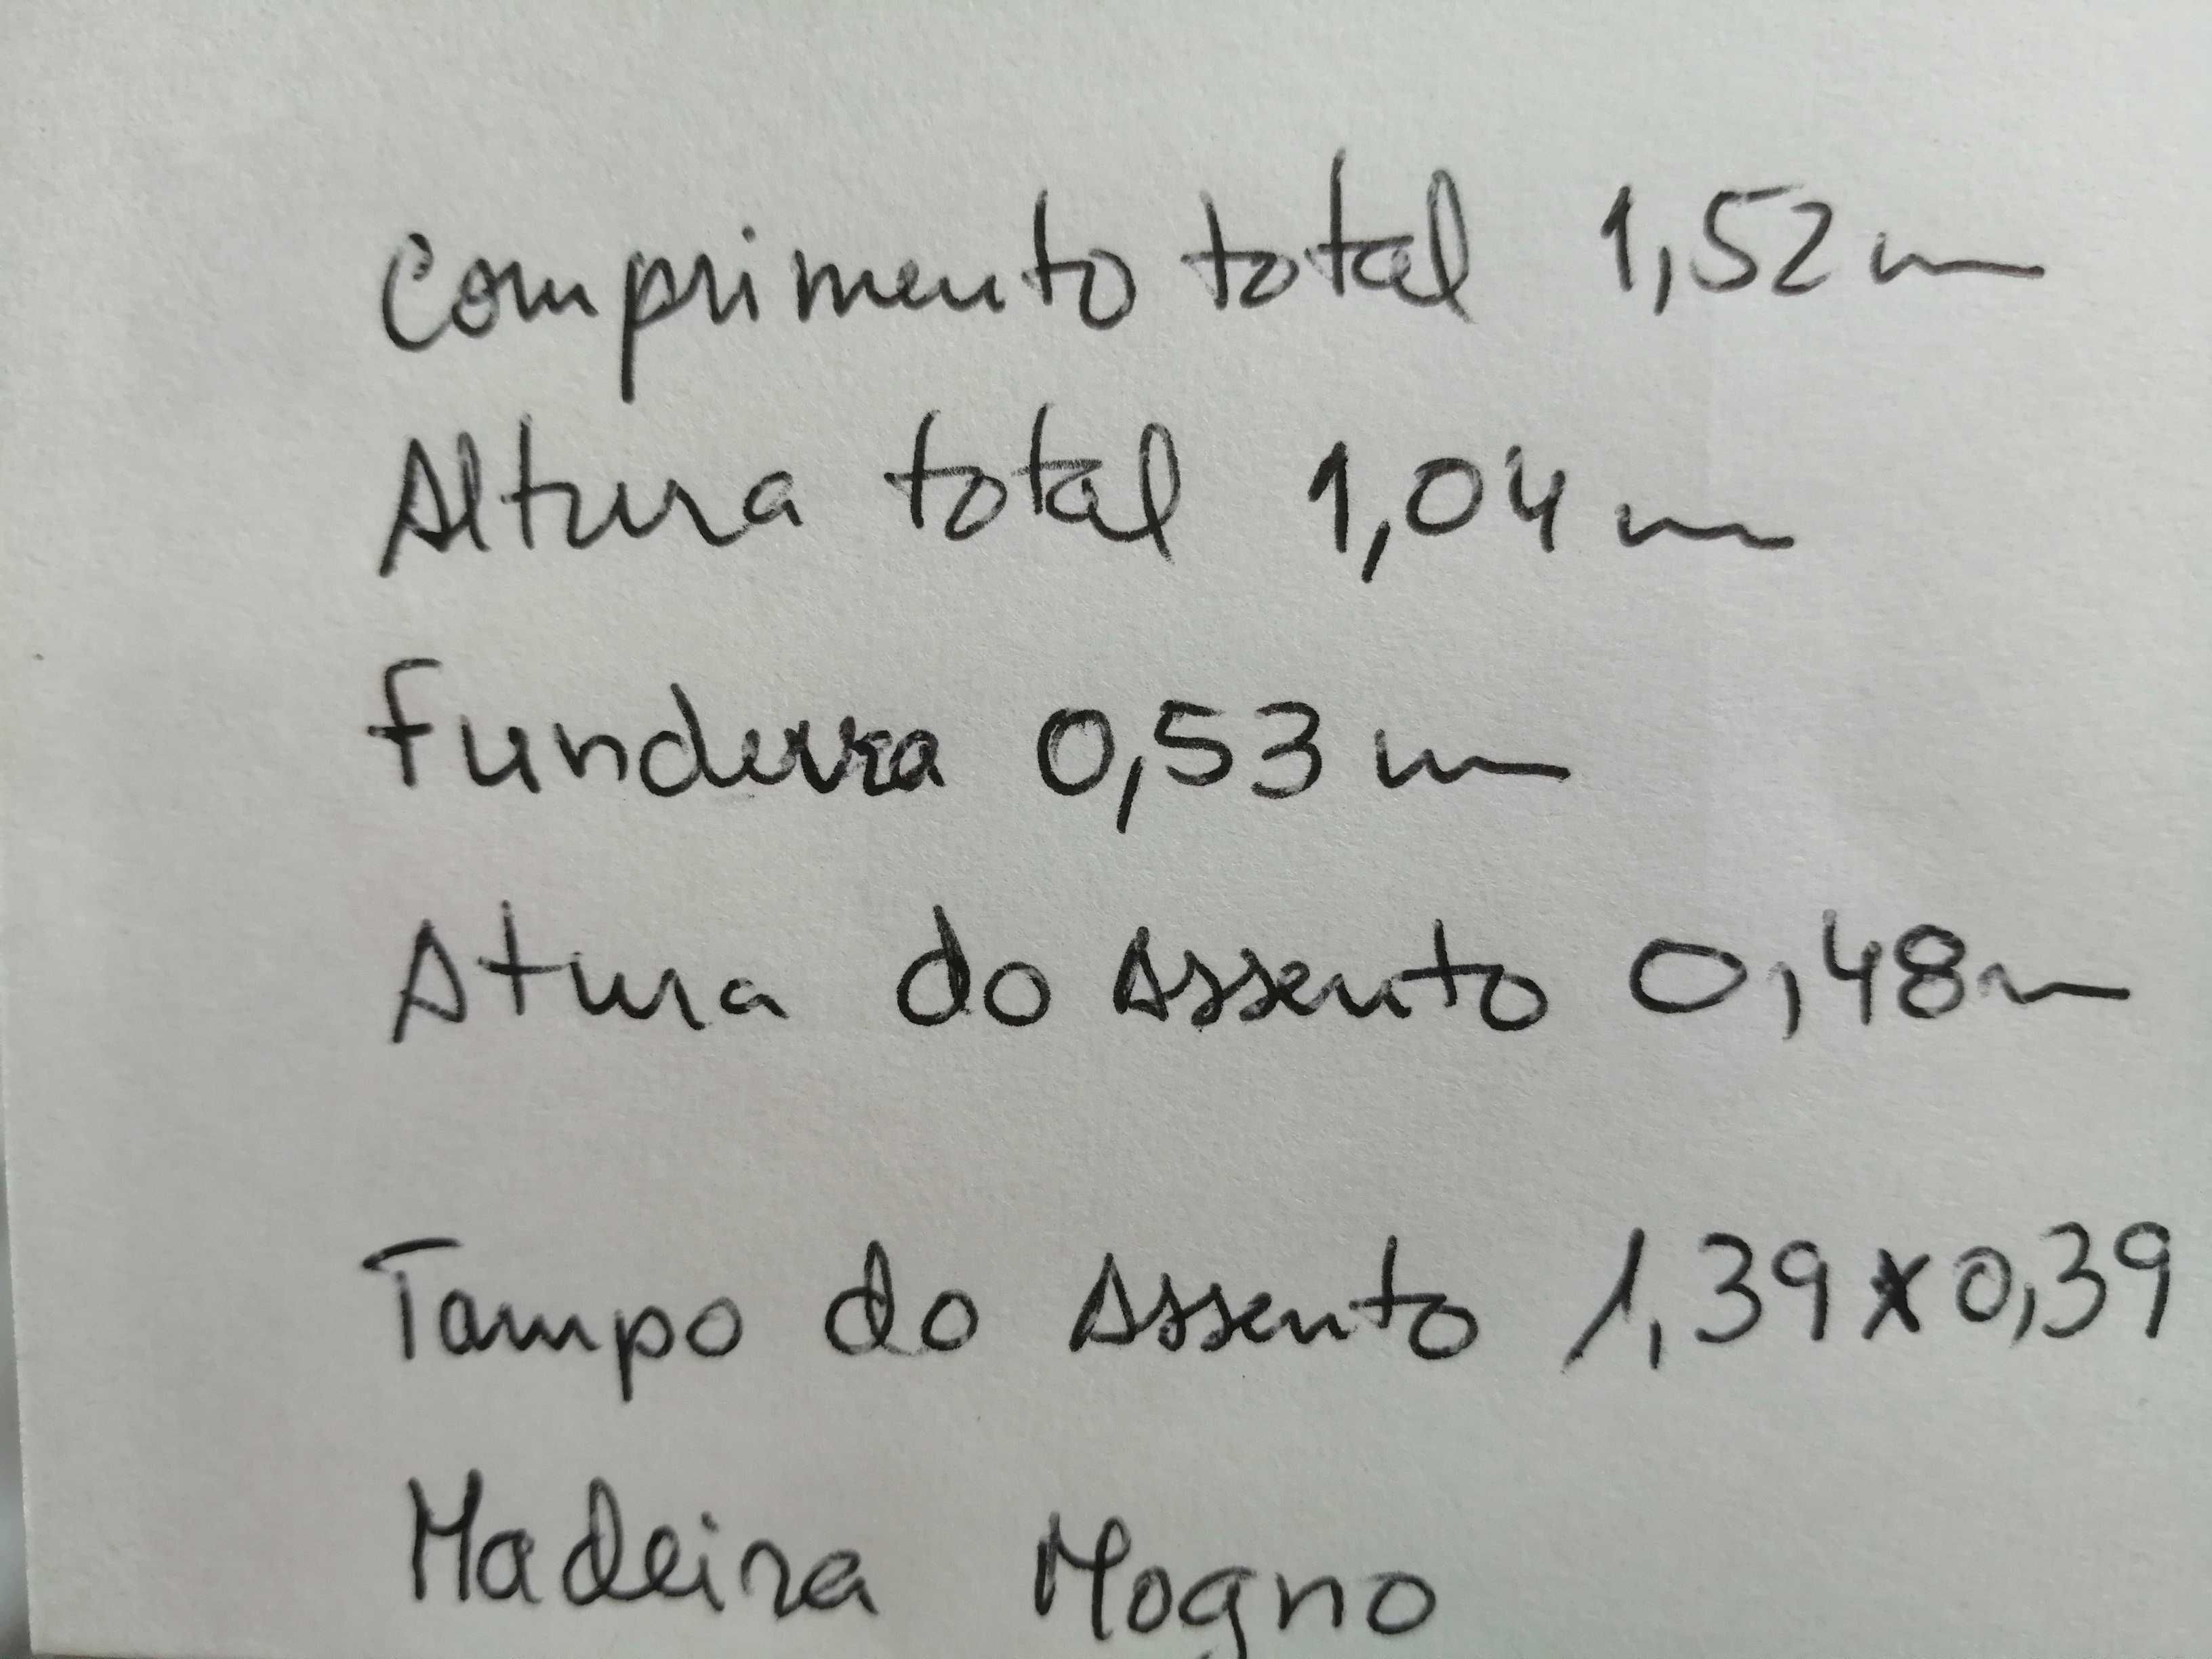 Comprimento total 1,52 m
Altura total 1,04 m
Fundura 0,53 m
Atura do Assento 0,48 m
Tampo do Assento 1,39 x 0,39
Madeira Mogno